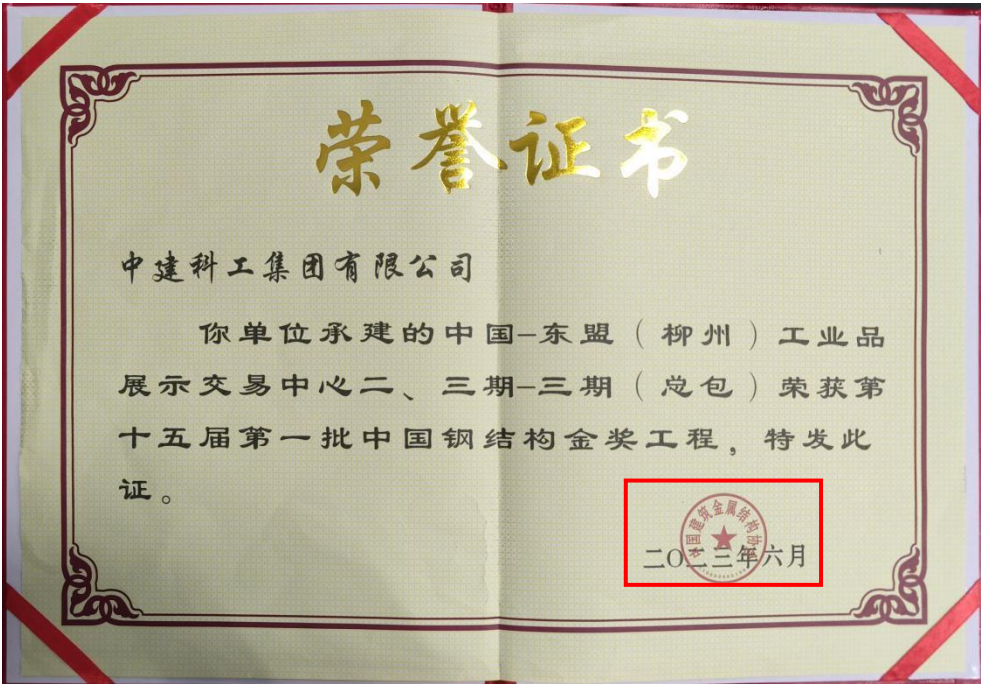 荣誉证书
中建科工集团有限公司
你单位承建的中国-东盟（柳州）工业品
展示交易中心二、三期-三期（总包）荣获第
十五届第一批中国钢结构金奖工程，特发此
证。
中国建筑金属结构协会
二〇二三年六月